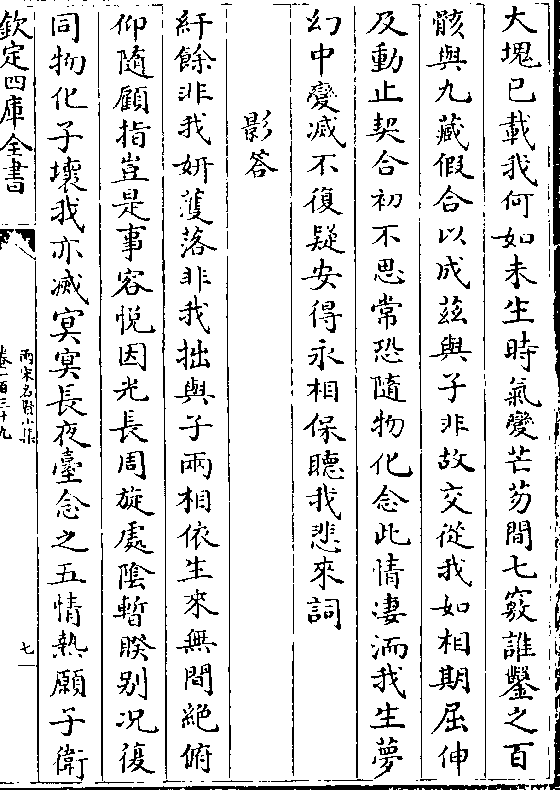 大塊已載我何如未生時氣變芒芴間七竅誰鑿之百
骸與九藏假合以成茲與子非故交從我如相期屈伸
及動止契合初不思常恐隨物化念此情淒洏我生夢
幻中變滅不復疑安得永相保聽我悲來詞
影答
紆餘非我妍濩落非我拙與子兩相依生來無間絕俯
仰隨顧指豈是事容悅因光長周旋處陰暫暌别况復
同物化子壞我亦滅冥冥長夜臺念之五情熱願子衛
欽定四庫全書
兩宋名賢小集
卷一百三十九
七